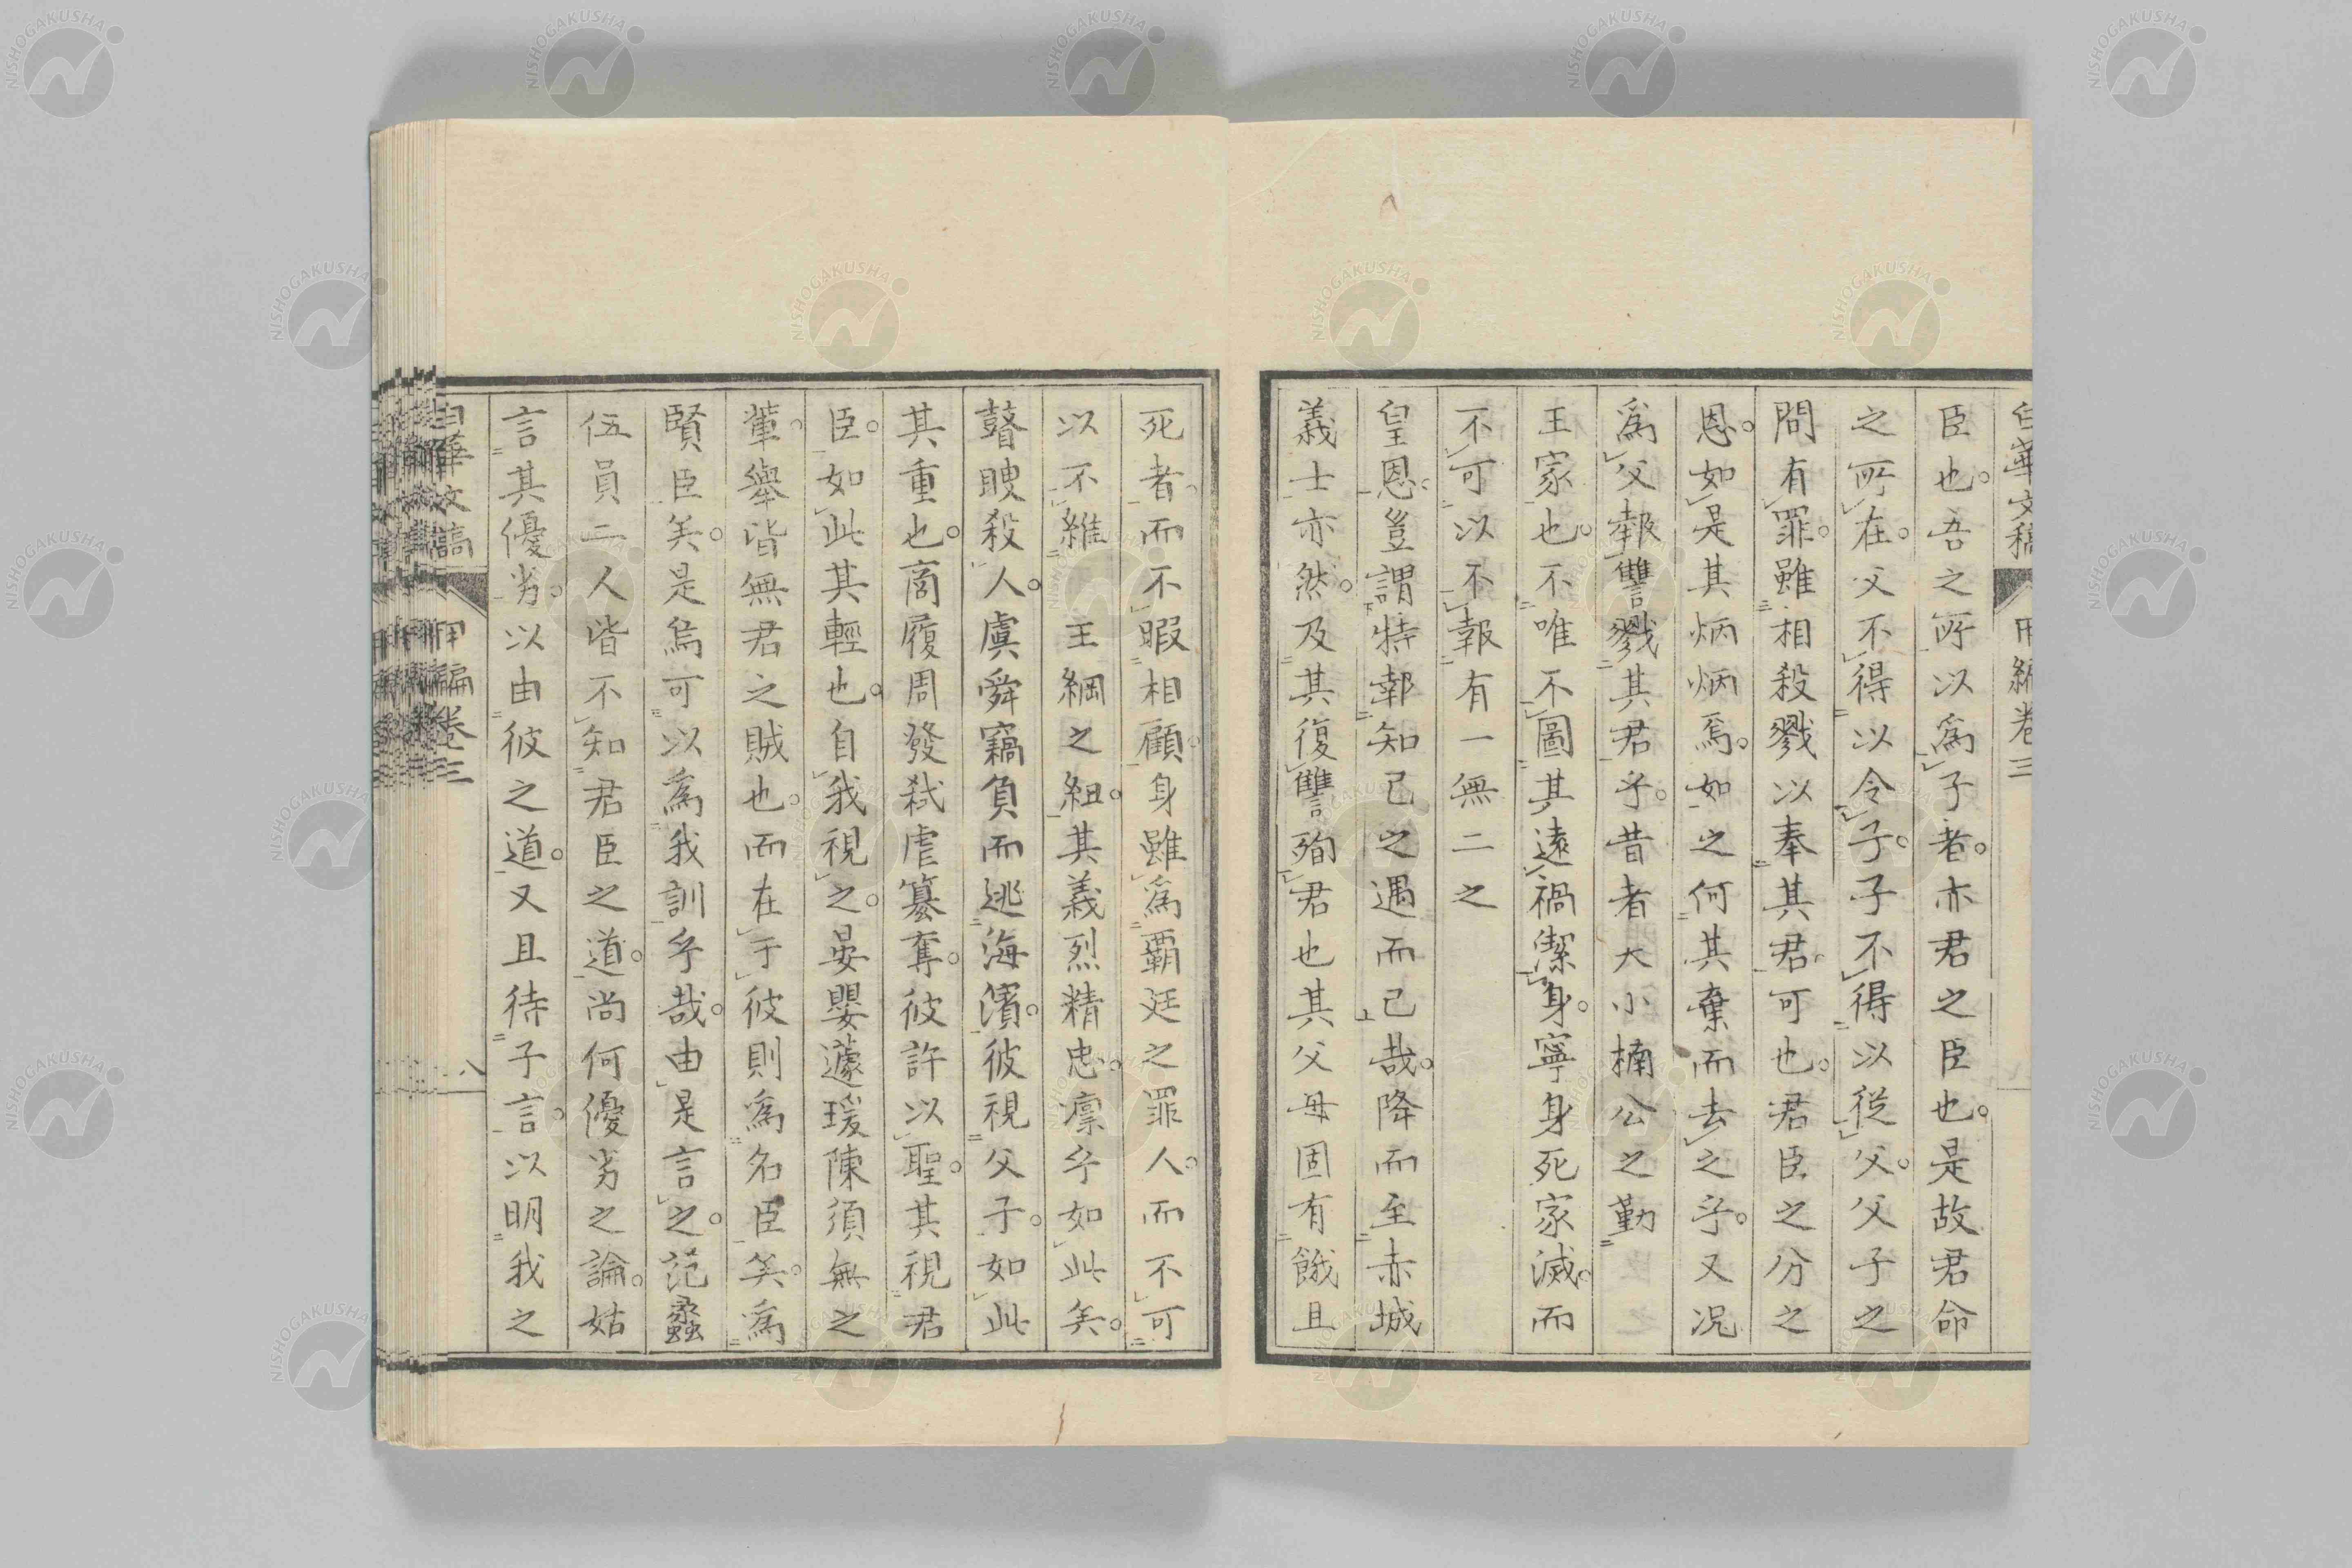 白華文稿 甲編卷三
臣也。吾之所以爲子者。亦君之臣也。是故君命
之所在。父不得以令子。子不得以從父。父子之
間有罪。雖相殺戮以奉其君。可也。君臣之分之
恩。如是其炳炳焉。如之何其棄而去之乎。又況
爲父報讐戮其君乎。昔者大小楠公之勤
王家也。不唯不圖其遠禍潔身。寧身死家滅。而
不可以不報有一無二之
皇恩。豈謂特報知己之遇而已哉。降而至赤城
義士亦然。及其復讐殉君也其父母固有餓且
死者。而不暇相顧。身雖爲覇廷之罪人。而不可
以不維 王綱之紐。其義烈精忠。凛乎如此矣。
瞽瞍殺人。虞舜竊負而逃海濱。彼視父子。如此
其重也。商履周發弑虐簒奪。彼許以聖。其視君
臣。如此其輕也。自我視之。晏嬰蘧瑗陳須無之
輩。舉皆無君之賊也。而在于彼則爲名臣矣。爲
賢臣矣。是焉可以爲我訓乎哉。由是言之。范蠡
伍員二人皆不知君臣之道。尚何優劣之論。姑
言其優劣。以由彼之道。又且待子言。以明我之
白華文稿 甲編卷三 八
NISHOGAKUSHA